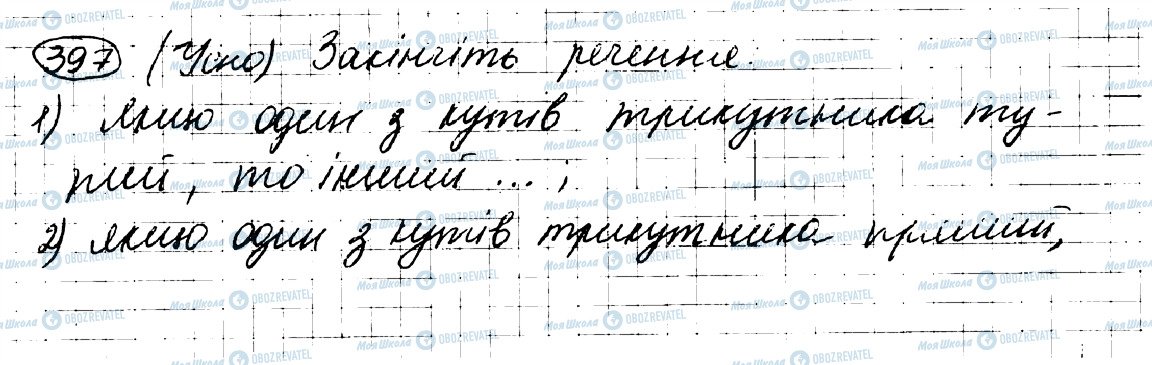 397 (Усно) Закінчіть речення.
1) якщо один з кутів трикутника ту-
пий, то інший ... ;
2) якщо один з кутів трикутника прямий,